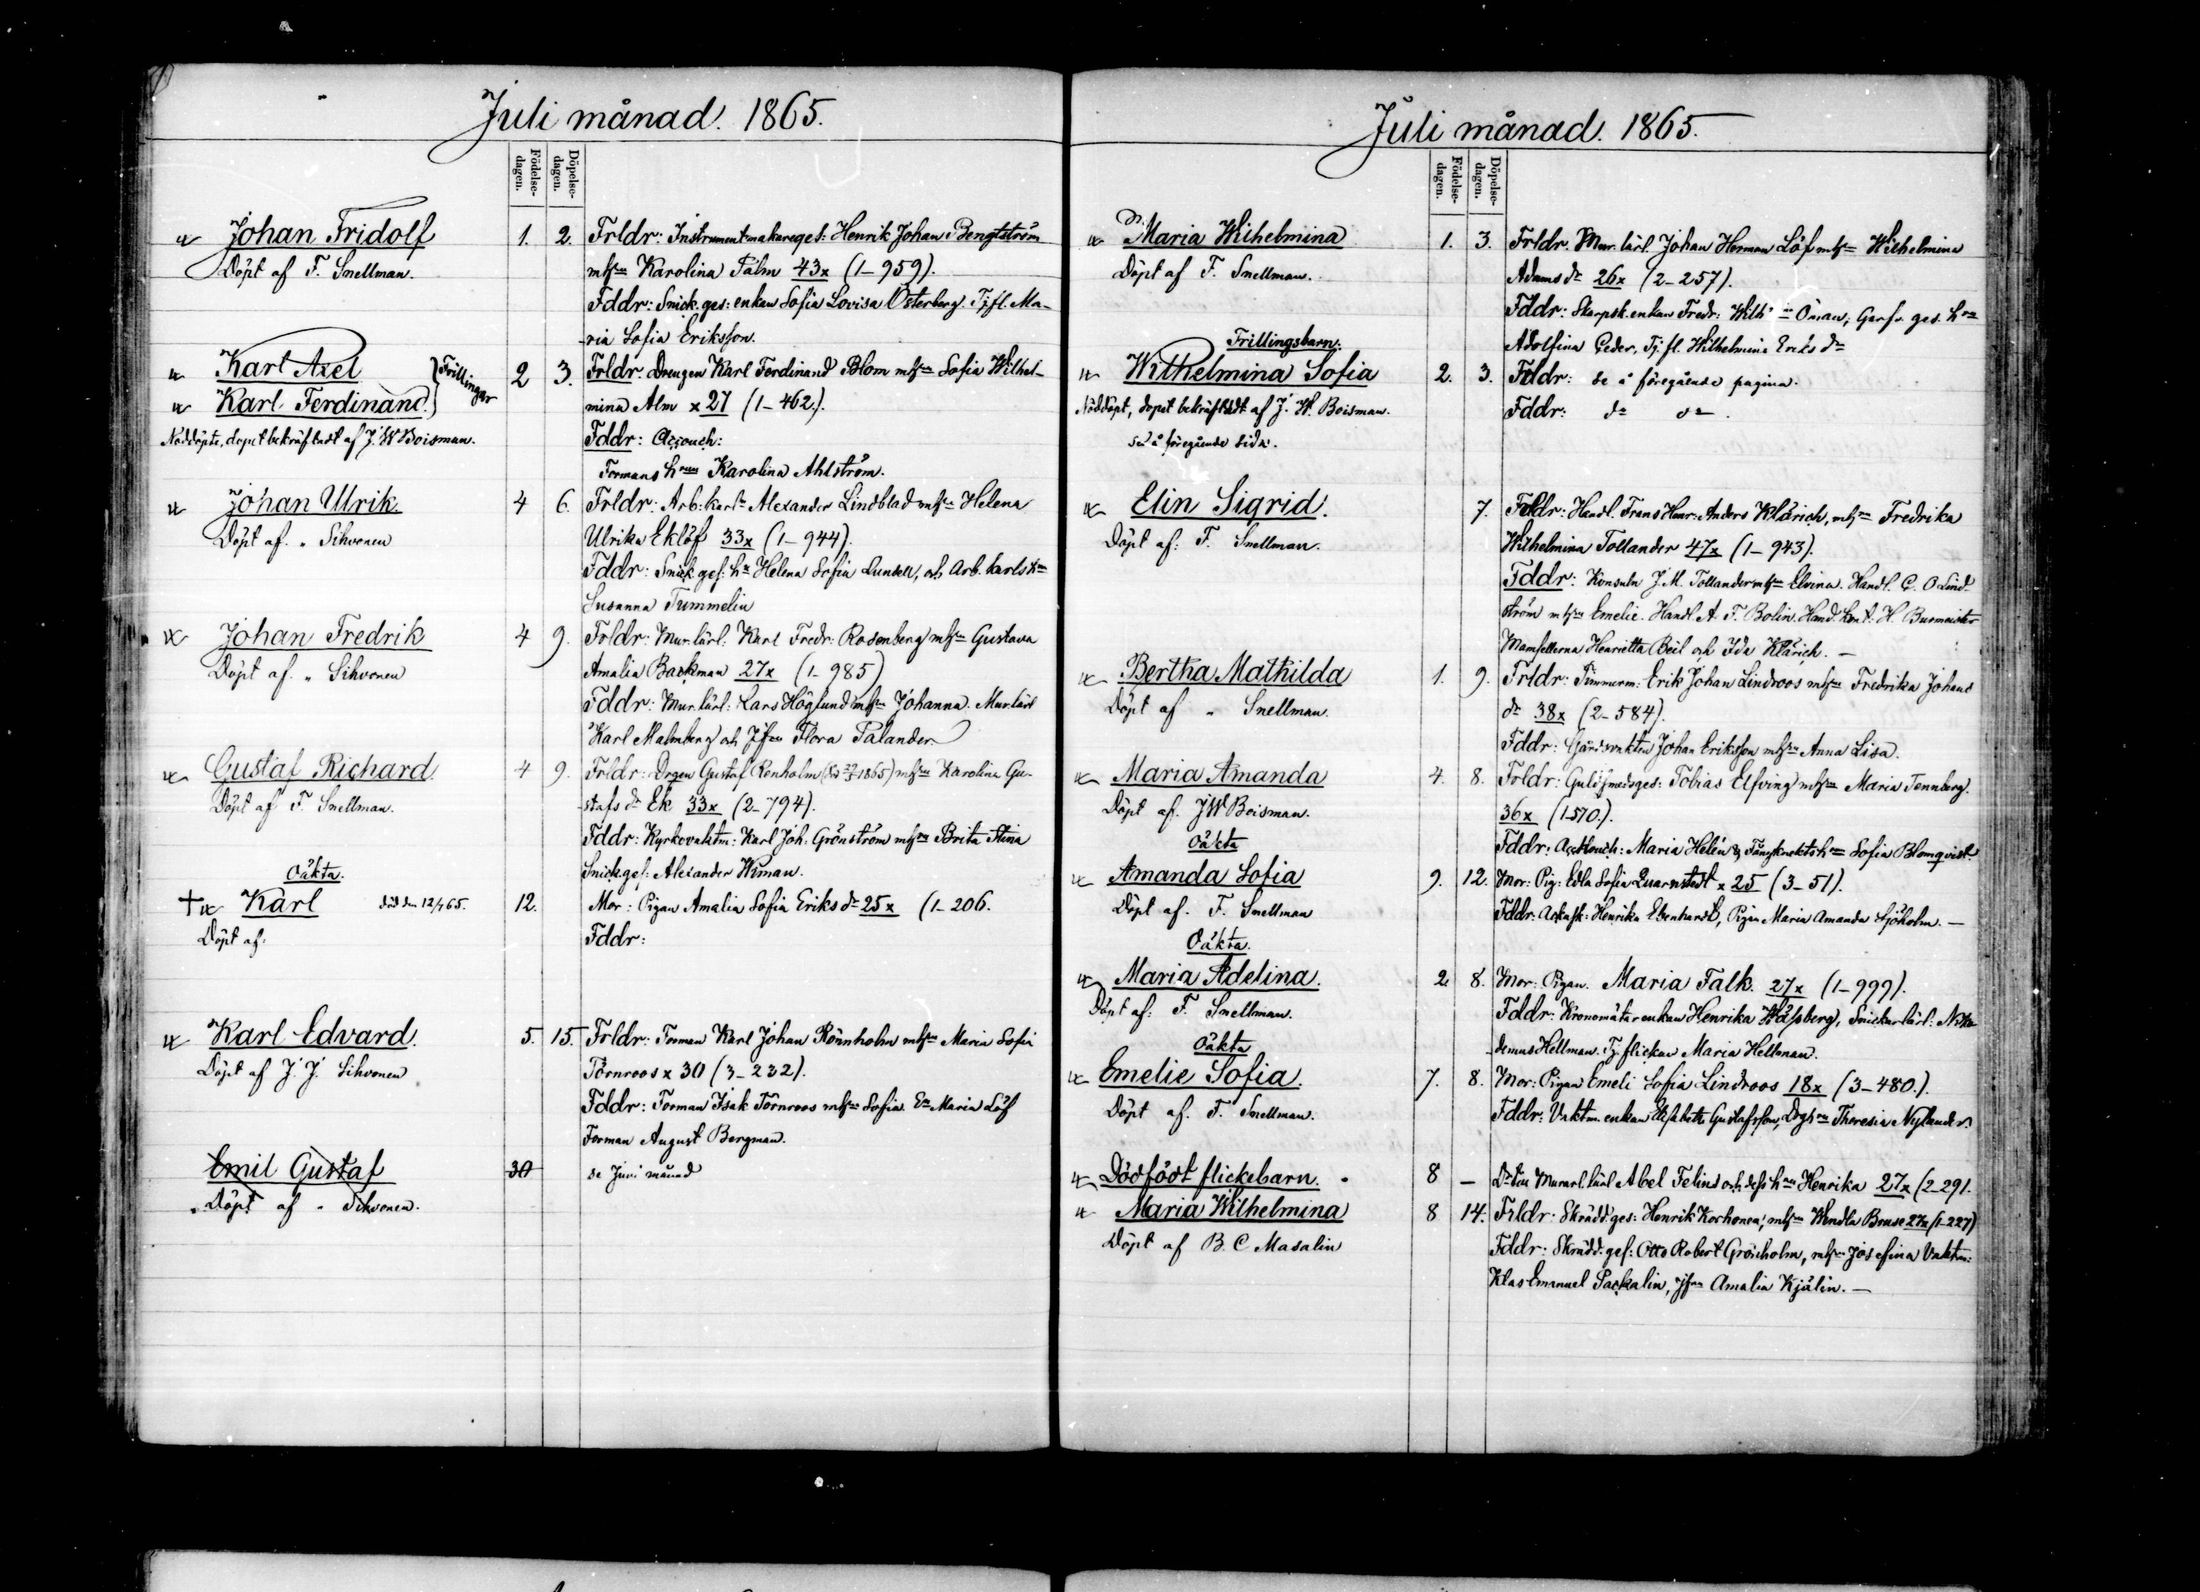 Juli månad. 1865.
Födelse-dagen.
Döpelse-dagen.
Johan Fridolf 1. 2. Frldr: Instrumentmakareges: Henrik Johan Bengtström
Döpt af F. Snellman. mhsu Karolina Falm 43x (1-959).
Fddr: Snick. ges: enkan Sofia Lovisa Österberg. Tj.fl. Ma-
ria Sofia Eriksson.
Karl Axel } Trillingar 2 3. Frldr: Drengen Karl Ferdinand Blom mhsu Sofia Wilhel-
Karl Ferdinand. mina Alm x 27 (1-462.).
Nöddöpte, dopet bekräftadt af J. W Boisman. Fddr: Accouch:
Formans hrun Karolina Ahlström.
Johan Ulrik 4 6. Frldr: Arb: karln Alexander Lindblad mhsu Helena
Döpt af. " Sihvonen Ulrika Eklöf 33x (1-944).
Fddr: Snick ges: hu Helena Sofia Lundell, och Arb. karls hu
Susanna Tummelin
Johan Fredrik 4 9. Frldr: Mur.lärl: Karl Fredr: Rosenberg mhsu Gustava
Döpt af. " Sihvonen Amalia Backman 27x (1-985)
Fddr: Mur.lärl: Lars Höglund mhsu Johanna. Mur.lärl
Karl Malmberg och Jfrn Flora Palander.
Gustaf Richard. 4 9. Frldr: Drgen Gustaf Renholm mhsu Karolina Gu-
Döpt af F. Snellman. stafs dr Ek 33x (2-794).
Fddr: Kyrkovaktm: Karl Joh: Grönström mhsu Brita Stina
Snick.ges: Alexander Wiman.
Oäkta.
† Karl död den 12/7 65. 12. Mor: Pigan Amalia Sofia Eriks dr 25x (1-206.
Döpt af: Fddr:
Karl Edvard. 5. 15. Frldr: Forman Karl Johan Rönnholm mhsu Maria Sofia
Döpt af J. J. Sihvonen Törnroos x 30 (3-232).
Fddr: Forman Isak Törnroos mhsu Sofia. En Maria Löf
Forman August Bergman.
Emil Gustaf 30 se Juni månad
Döpt af " Sihvonen.
Juli månad. 1865.
Födelse-dagen.
Döpelse-dagen.
Maria Wilhelmina 1. 3. Frldr. Mur. lärl. Johan Herman Löf mhsu Wilhelmina
Döpt af F. Snellman. Adams dr 26x (2-257).
Fddr: Skarpsk. enkan Fredr: Wilh Öman, Garfv. ges. hru
Trillingsbarn. Adolfina Ceder, Tj. fl. Wilhelmina Eriks dr
Wilhelmina Sofia 2. 3. Frldr: se å föregående pagina.
Nöddöpt, dopet bekräftadt af J. W. Boisman. Fddr: do do.
se å föregående sida.
Elin Sigrid. 7. Frldr: Handl. Frans Henr: Anders Klärich, mhsu Fredrika
Döpt af: F. Snellman. Wilhelmina Tollander 47x (1-943).
Fddr: Konsuln J. M. Tollander mhsu Elvina. Handl. C. O Lind-
ström mhsu Emelie. Handl. A. F. Bolin, Hand. H. Burmeister
Mamsellerna Henrietta Beil och Ida Klärich. —
Bertha Mathilda 1. 9. Frldr: Timmerm: Erik Johan Lindroos mhsu Fredrika Johans
Döpt af " Snellman. dr 38x (2-584).
Fddr: Gårdsvakten Johan Eriksson mhsu Anna Lisa.
Maria Amanda 4. 8. Frldr: Guldsmedsges: Tobias Elfving mhsu Maria Tennberg.
Döpt af. J W Boisman. 36x (1-570.).
Oäkta Fddr: Accouch: Maria Helén & Fångknekts hru Sofia Blomqvist.
Amanda Sofia 9. 12. Mor: Pig: Edla Sofia Quarnstedt x 25 (3-51).
Döpt af. F. Snellman Fddr: Henrika Ebenhardt, Pigan Maria Amanda Sjöholm. —
Oäkta.
Maria Adelina. 2. 8. Mor: Pigan. Maria Falk. 27x (1-999).
Döpt af: F. Snellman. Fddr: Kronomätar enkan Henrika Wåhlberg, Snickarlärl: Niko-
Oäkta demus Hellman. Tj. flickan Maria Hellman.
Emelie Sofia. 7. 8. Mor: Pigan Emeli Sofia Lindroos 18x (3-480.).
Döpt af. F. Snellman. Fddr: Vaktm. enkan Elisabeth Gustafsson, Drgs hru Theresia Nylander.
Dödfödt flickebarn. 8 — Dotter Murarl. lärl Abel Felins och dess hru Henrika 27x (2-291.
Maria Wilhelmina 8 14. Frldr: Skrädd. ges: Henrik Korhonen, mhsu Wendla Bruse 27x (1-227)
Döpt af B. C. Masalin Fddr: Skrädd: ges: Otto Robert Grönholm, mhsu Josefina Vaktm:
Klas Emanuel Packalin, Jfrn Amalia Kjälin. —